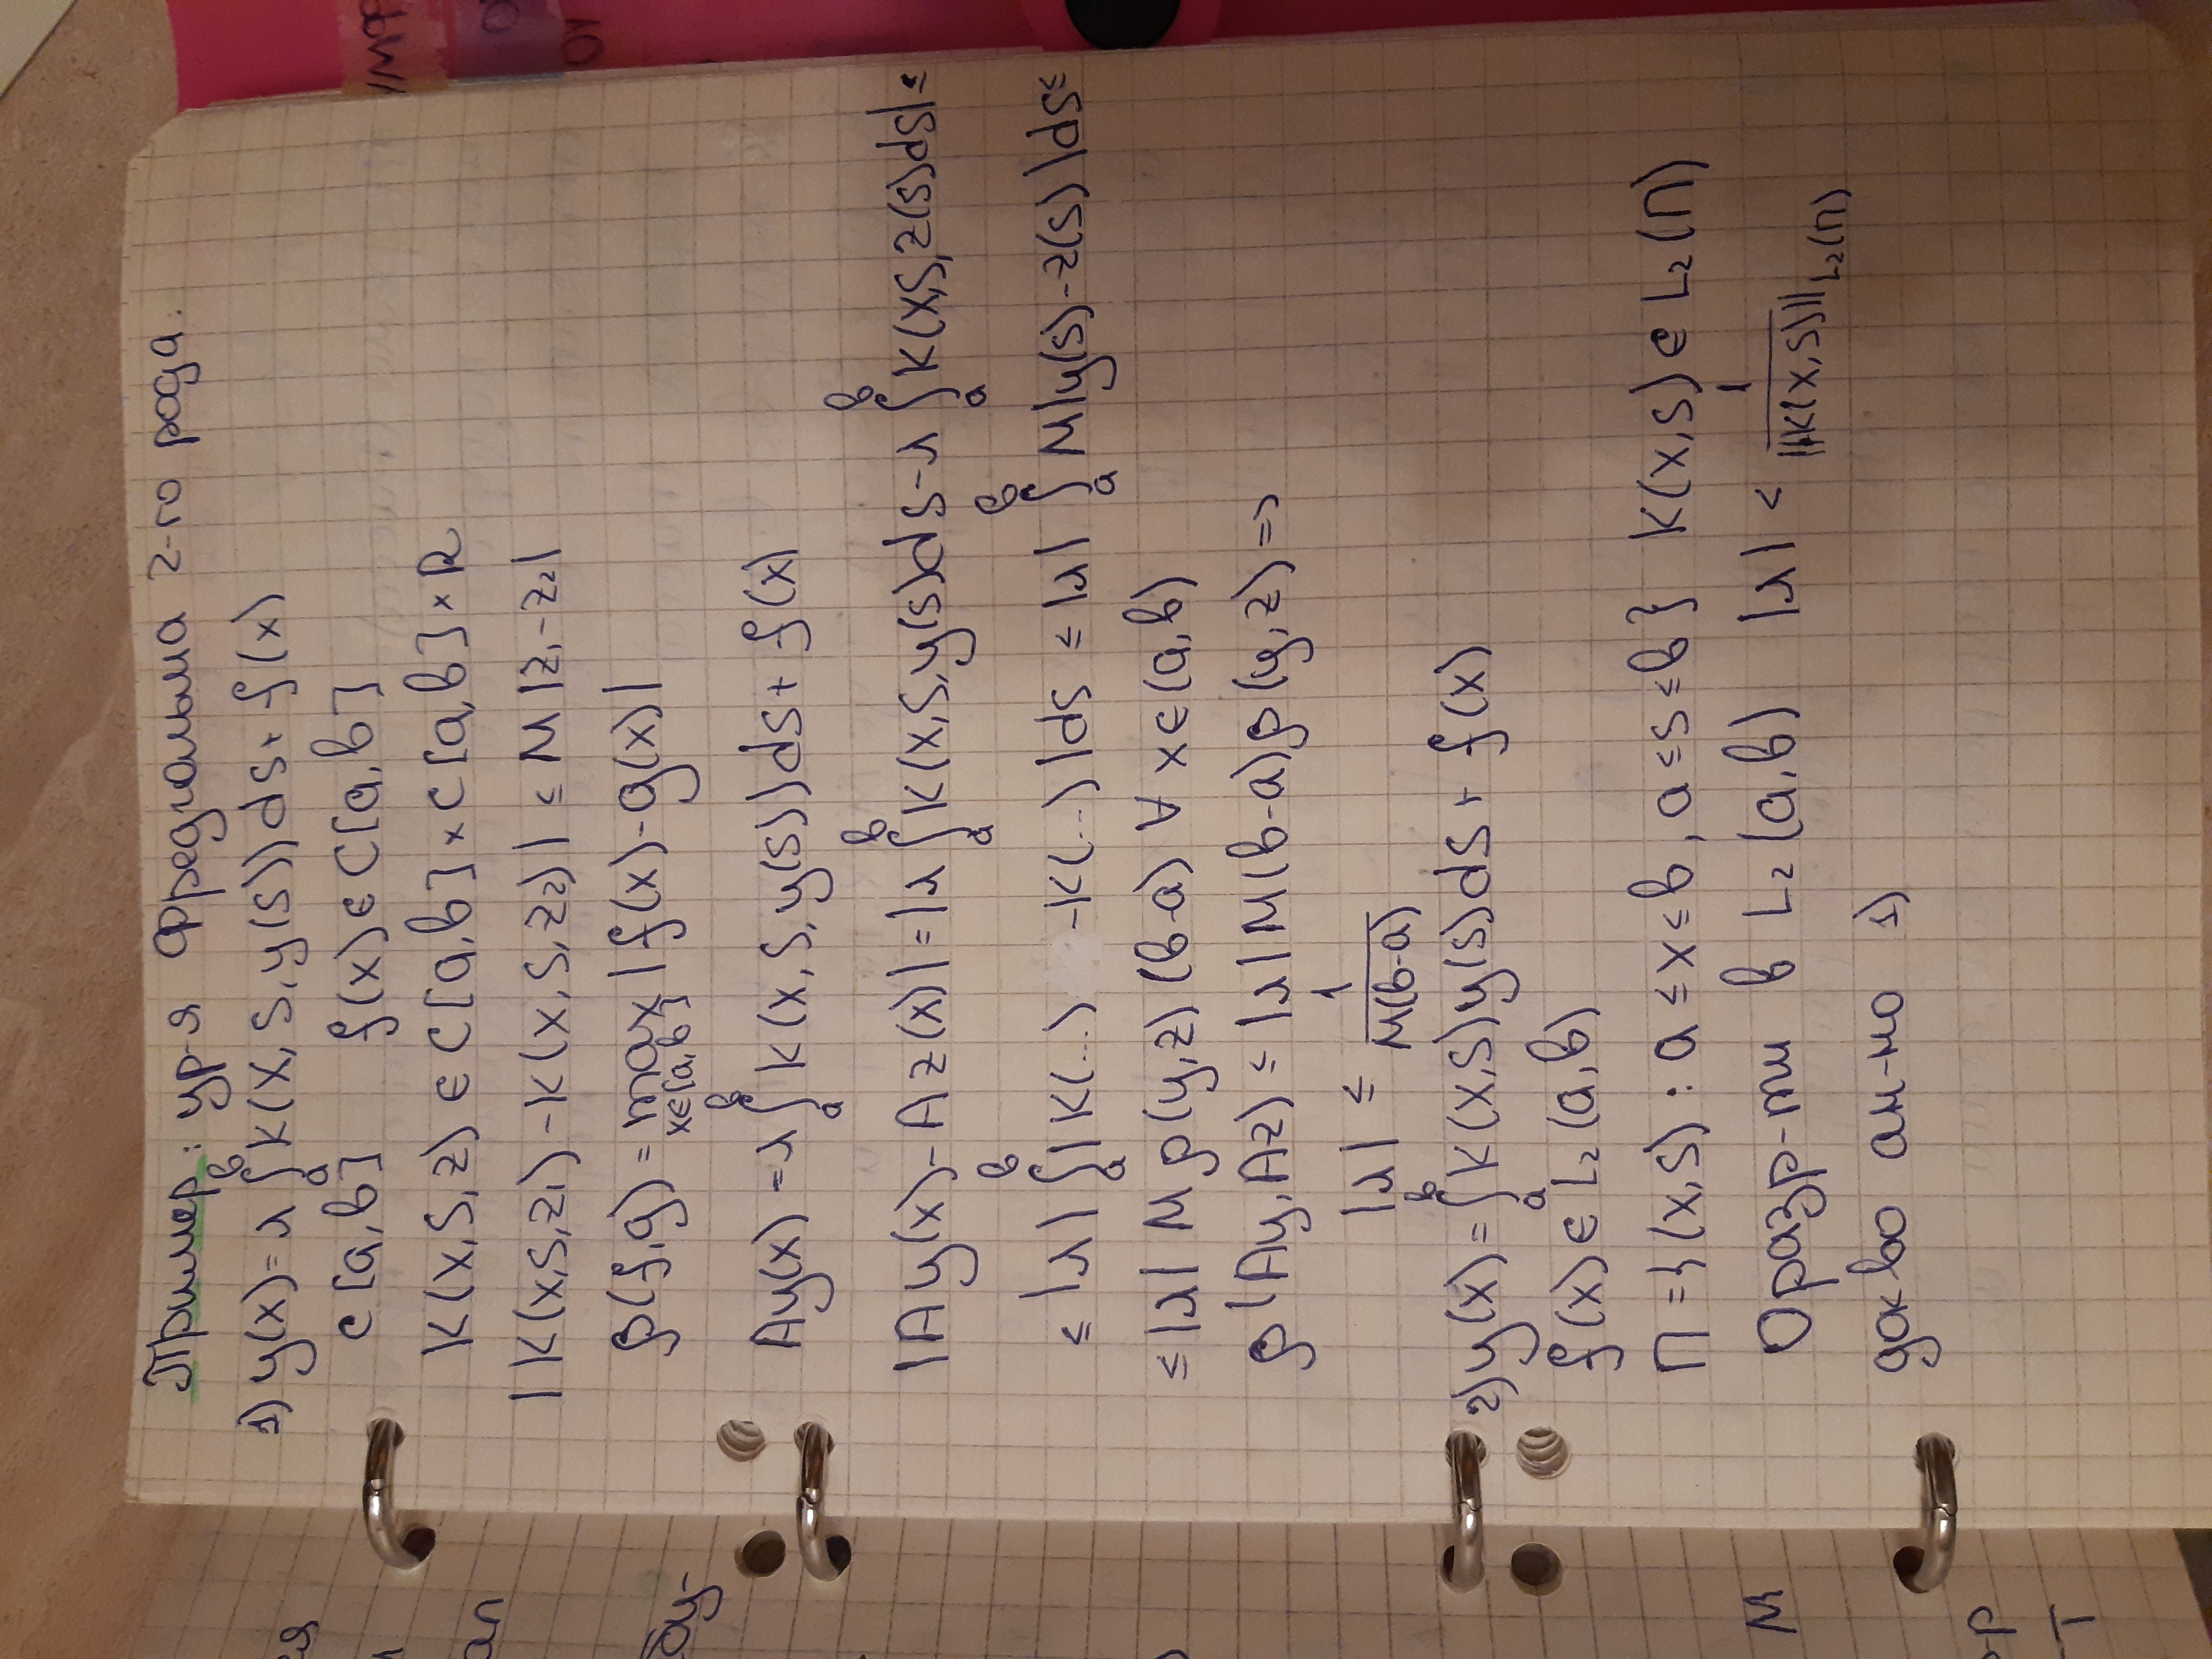 Пример: ур-я Фредгольма 2-го рода.
1) y(x) = λ ∫ₐᵇ K(x,s,y(s))ds + f(x)
C[a,b] f(x) ∈ C[a,b]
K(x,s,z) ∈ C[a,b] × C[a,b] × R
|K(x,s,z₁) - K(x,s,z₂)| ≤ M|z₁-z₂|
ρ(f,g) = max x∈[a,b] |f(x)-g(x)|
Ay(x) = λ ∫ₐᵇ K(x,s,y(s))ds + f(x)
|Ay(x) - Az(x)| = |λ ∫ₐᵇ K(x,s,y(s))ds - λ ∫ₐᵇ K(x,s,z(s)ds| ≤
≤ |λ| ∫ₐᵇ |K(...) - K(...)|ds ≤ |λ| ∫ₐᵇ M|y(s)-z(s)|ds ≤
≤ |λ| M ρ(y,z) (b-a) ∀ x ∈ (a,b)
ρ|Ay,Az) ≤ |λ| M(b-a)ρ(y,z) =>
|λ| ≤ 1/M(b-a)
2) y(x) = ∫ₐᵇ K(x,s)y(s)ds + f(x)
f(x) ∈ L₂(a,b)
П = {(x,s) : a ≤ x ≤ b, a ≤ s ≤ b} K(x,s) ∈ L₂(П)
Oразр-ми в L₂(a,b) |λ| < 1/||K(x,s)||L₂(П)
док-во ан-но 1)
M